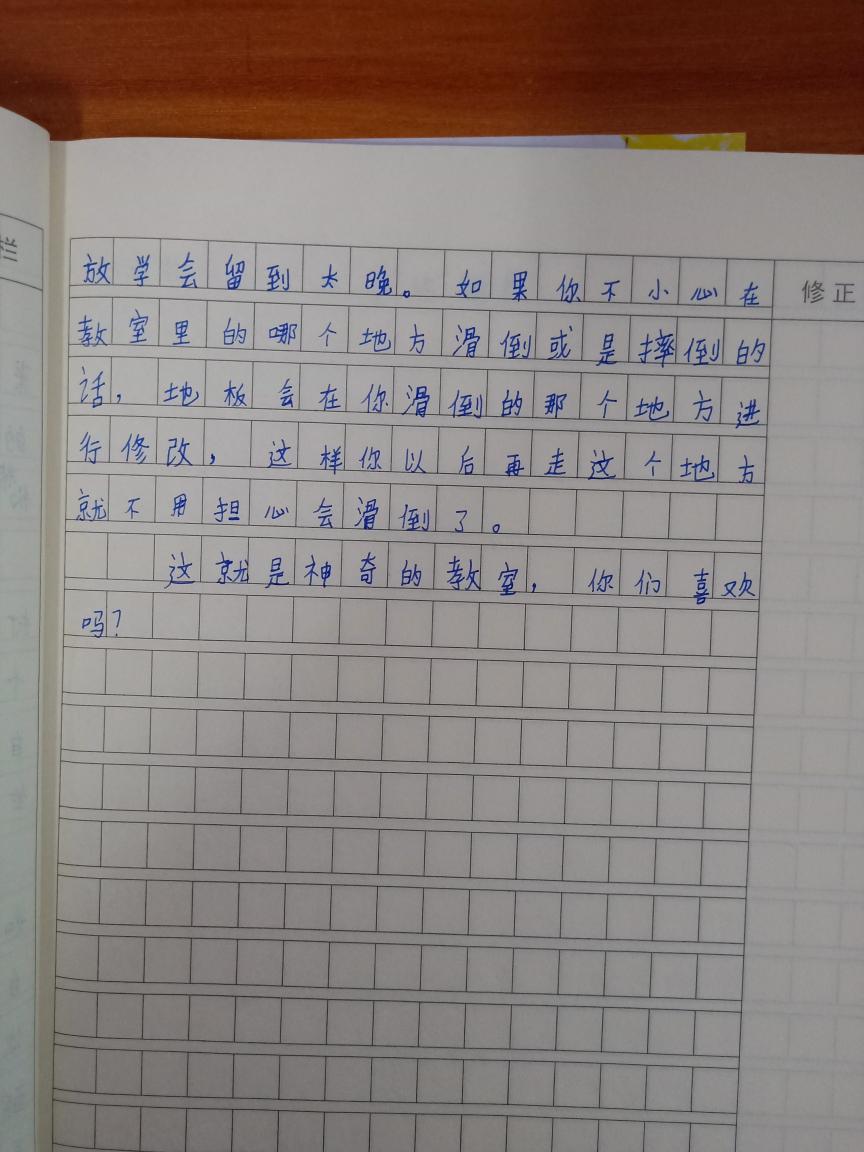 栏
修正
放学会留到太晚。如果你不小心在
教室里的哪个地方滑倒或是摔倒的
话，地板会在你滑倒的那个地方进
行修改，这样你以后再走这个地方
就不用担心会滑倒了。
这就是神奇的教室，你们喜欢
吗？